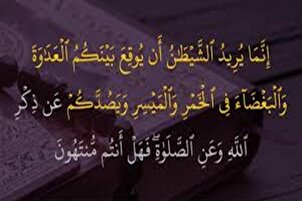 إِنَّمَا يُرِيدُ ٱلشَّيْطَٰنُ أَن يُوقِعَ بَيْنَكُمُ ٱلْعَدَاوَةَ
وَٱلْبَغْضَآءَ فِى ٱلْخَمْرِ وَٱلْمَيْسِرِ وَيَصُدَّكُمْ عَن ذِكْرِ
ٱللَّهِ وَعَنِ ٱلصَّلَوٰةِ ۖ فَهَلْ أَنتُم مُّنتَهُونَ